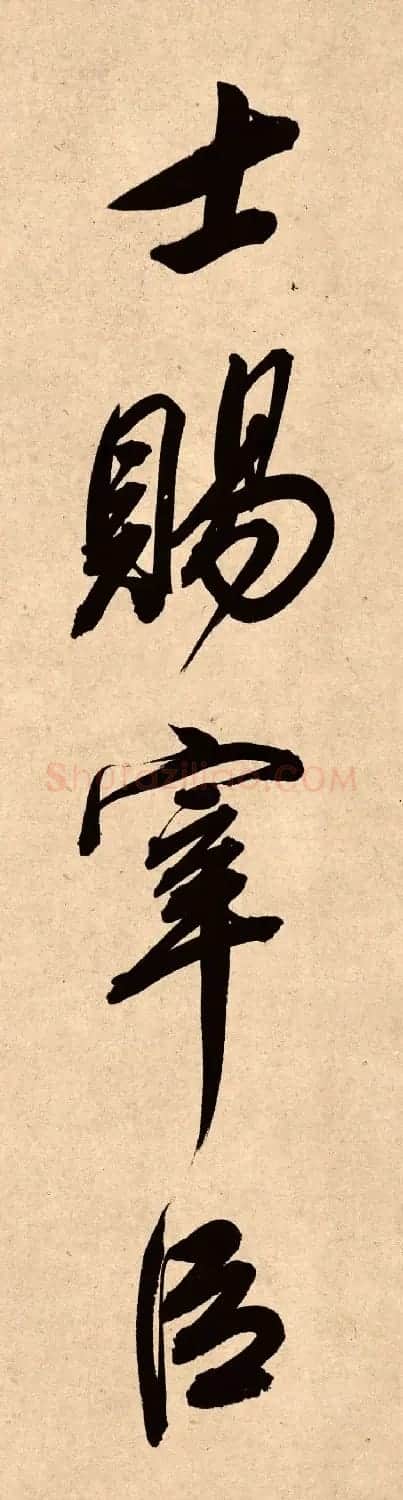 士賜宰臣
Shufaziliao.COM